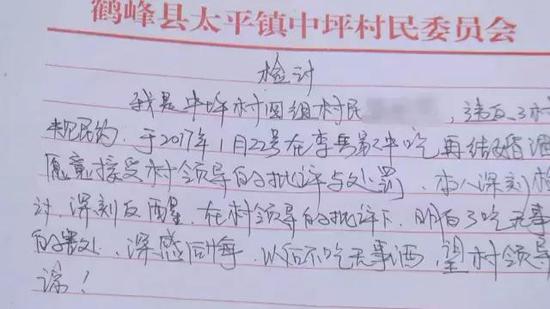 鹤峰县太平镇中坪村民委员会
检讨
我是中坪村四组村民 ，违反了村
规民约，于2017年1月22号在李 家中吃再结婚酒
愿意接受村领导的批评与处罚，本人深刻检
讨，深刻反醒，在村领导的批评下，明白了吃无事
的害处，深感后悔，以后不吃无事酒，望村领导
谅！